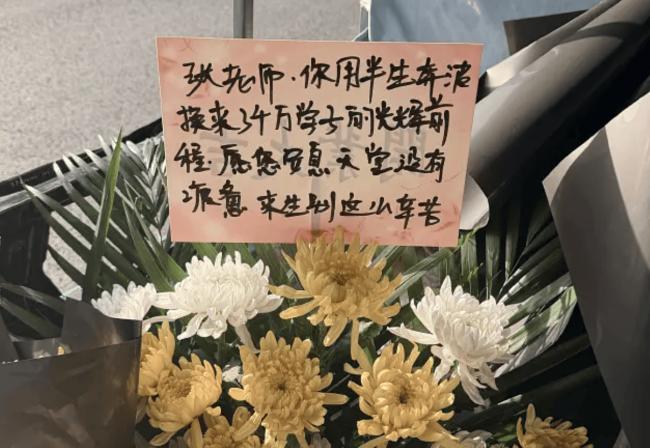 张老师,你用半生奔波
换来了千万学子的光辉前
程,愿您安息,天堂没有
疲惫 来生别这么辛苦